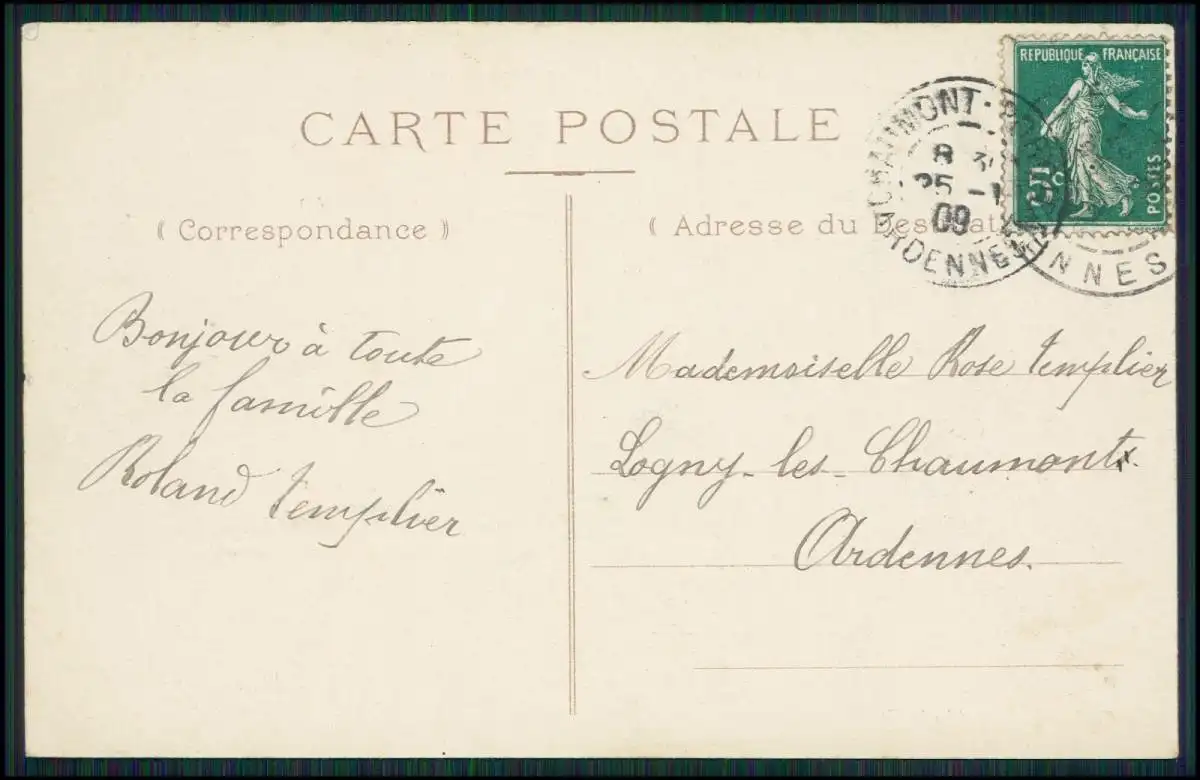 CARTE POSTALE
( Correspondance )
Bonjour à toute
la famille
Roland Templier
REPUBLIQUE FRANÇAISE
5c
POSTES
CHAUMONT-
8
25 -1
09
ARDENNES
NNES
( Adresse du
Mademoiselle Rose Templier
Logny-les-Chaumont.
Ardennes.